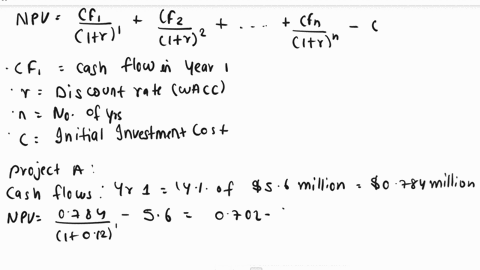 NPV = CF1/(1+r)^1 + CF2/(1+r)^2 + .... + CFn/(1+r)^n - C
· CF1 = cash flow in year 1
· r = Discount rate (WACC)
· n = No. of yrs
· C = Initial Investment Cost
Project A:
Cash flows: Yr 1 = 14% of $5.6 million = $0.784 million
NPV = 0.784/(1+0.12)^1 - 5.6 = 0.702 -